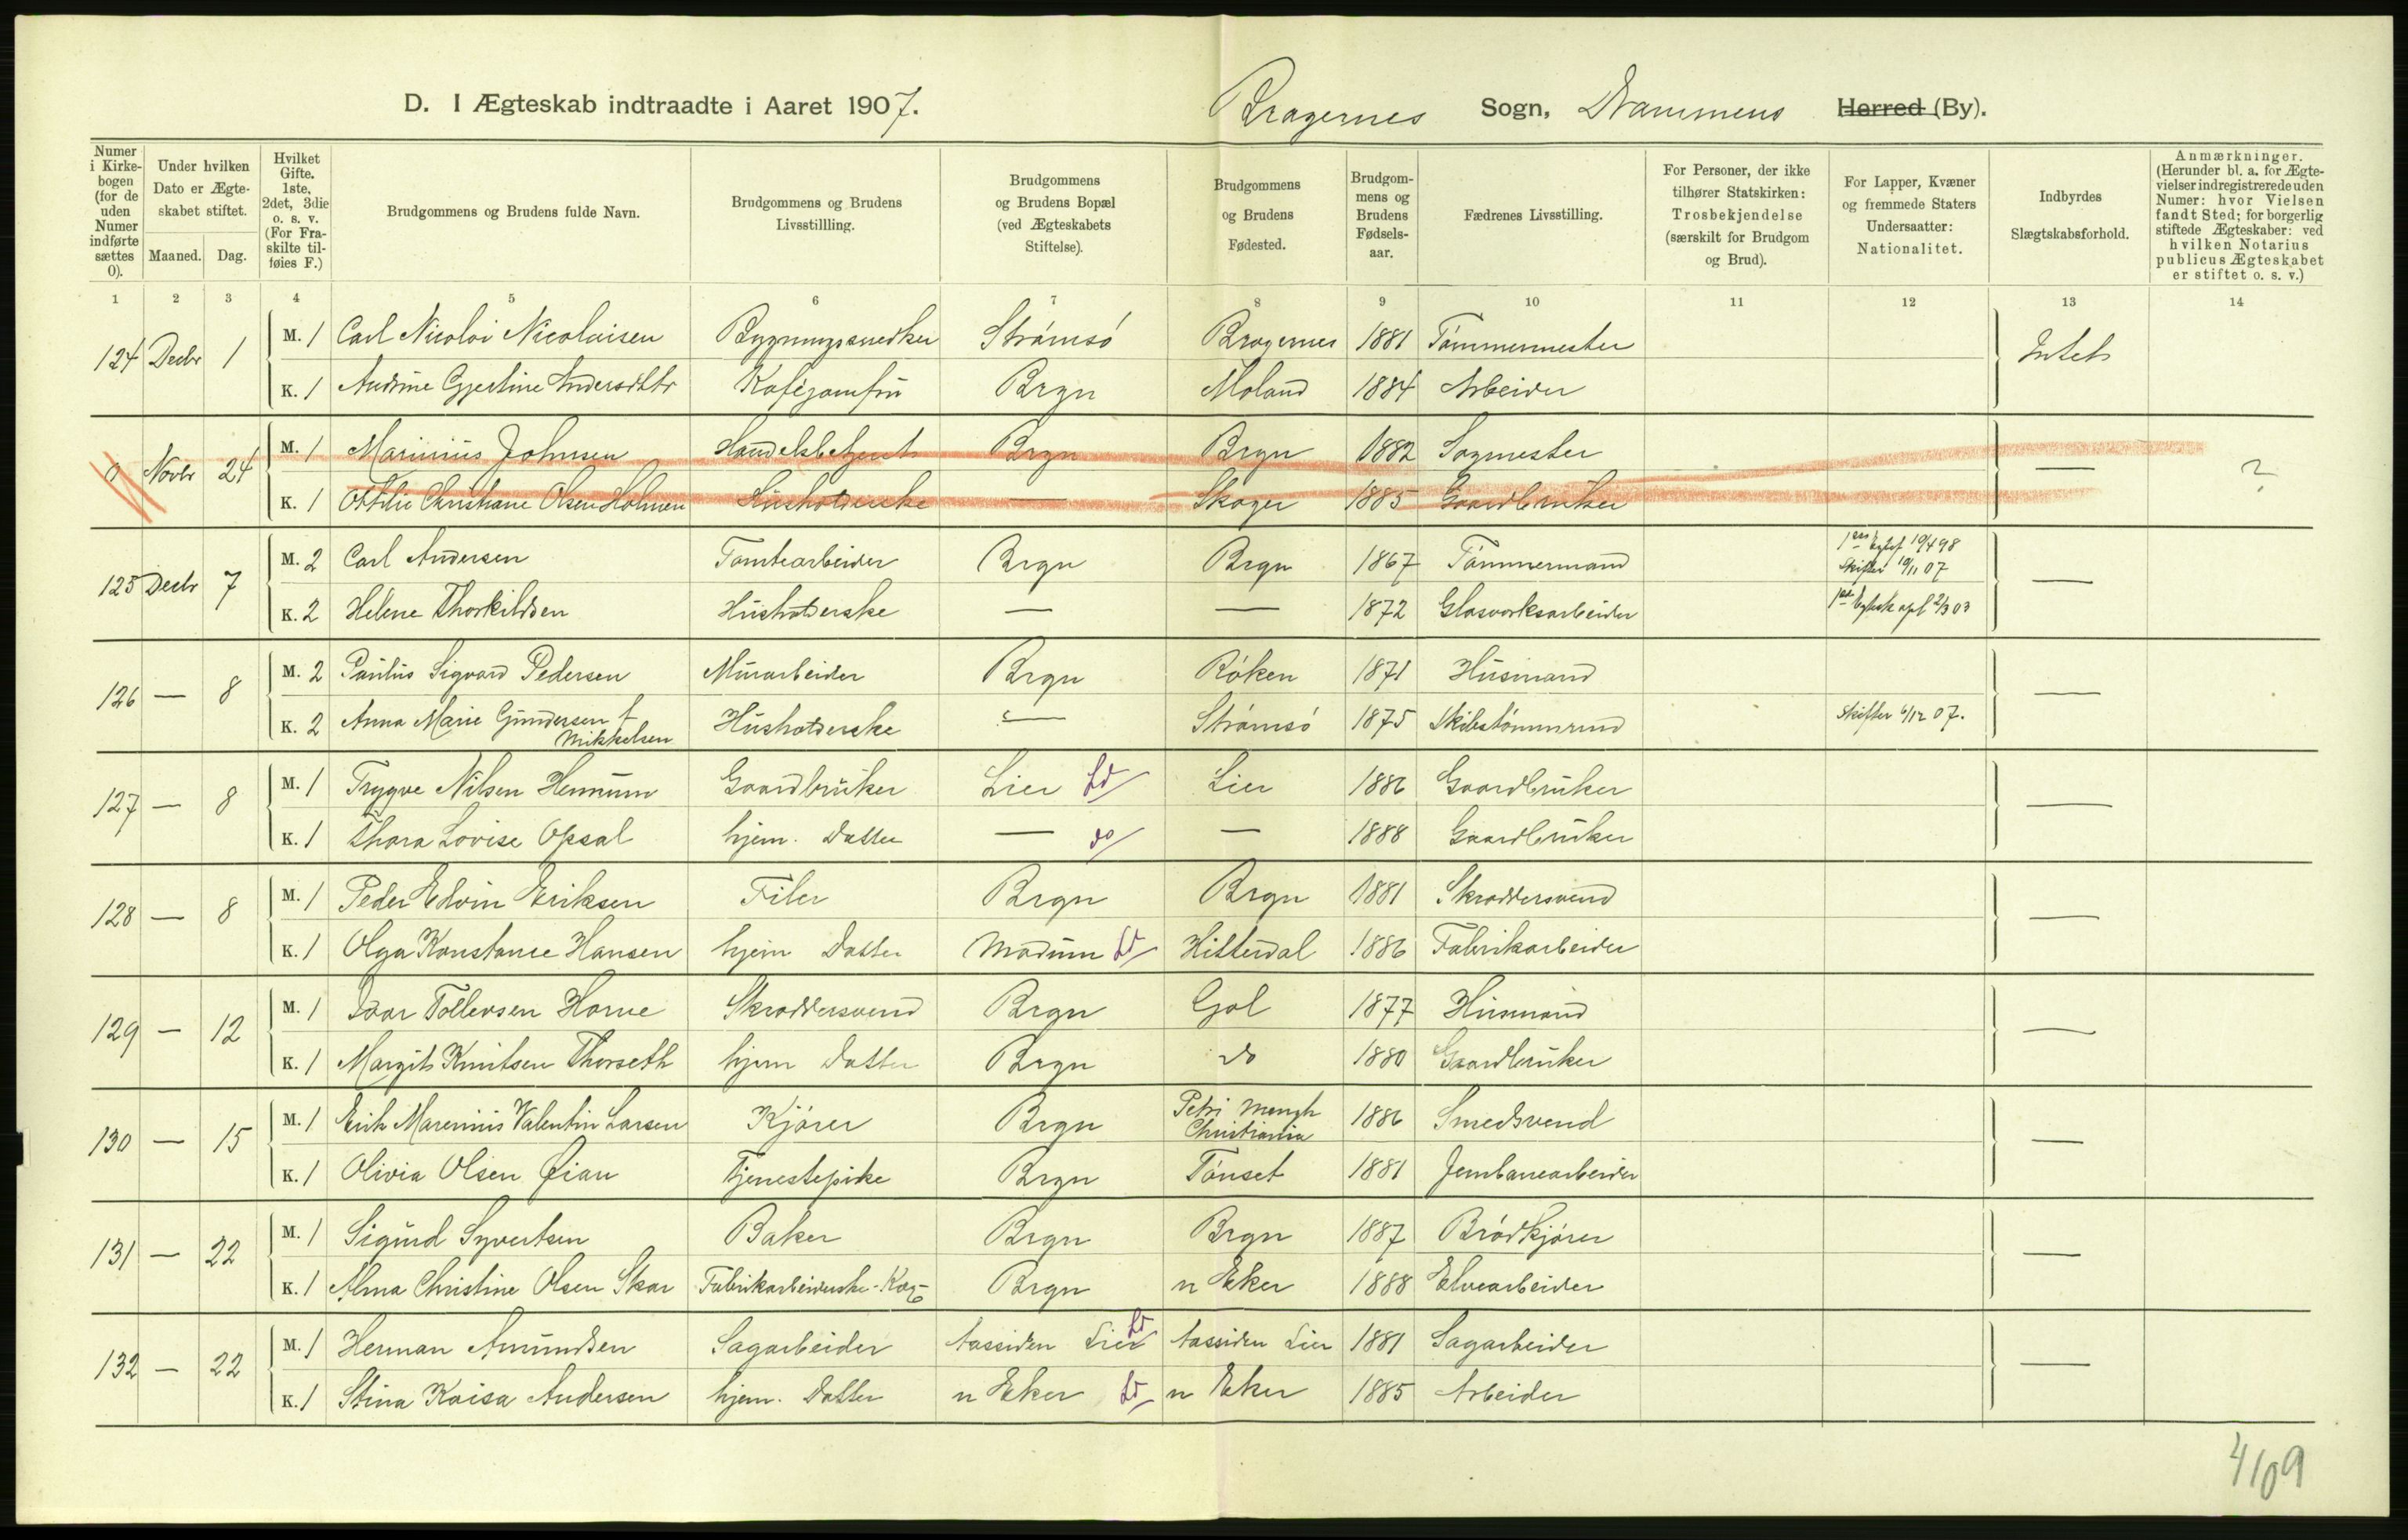 D. I Ægteskab indtraadte i Aaret 1907. Bragernes Sogn, Drammens Herred (By).
Numer i Kirkebogen (for de uden Numer indførte sættes 0).
Under hvilken Dato er Ægteskabet stiftet.
Maaned. Dag.
Hvilket Gifte. 1ste, 2det, 3die o. s. v. (For Fraskilte tilføies F.)
Brudgommens og Brudens fulde Navn.
Brudgommens og Brudens Livsstillling.
Brudgommens og Brudens Bopæl (ved Ægteskabets Stiftelse).
Brudgommens og Brudens Fødested.
Brudgommens og Brudens Fødselsaar.
Fædrenes Livsstilling.
For Personer, der ikke tilhører Statskirken: Trosbekjendelse (særskilt for Brudgom og Brud).
For Lapper, Kvæner og fremmede Staters Undersaatter: Nationalitet.
Indbyrdes Slægtskabsforhold.
Anmærkninger. (Herunder bl. a. for Ægtevielser indregistrerede uden Numer: hvor Vielsen fandt Sted; for borgerlig stiftede Ægteskaber: ved hvilken Notarius publicus Ægteskabet er stiftet o. s. v.)
1 2 3 4 5 6 7 8 9 10 11 12 13 14
124 Decbr 1 M. 1 Carl Nicolai Nicolaisen Bygningssnedker Strømsø Bragernes 1881 Tømmermester Intet
K. 1 Andrine Gjertine Andersdttr Kaféjomfru Brgn Moland 1884 Arbeider
0 Novbr 24 M. 1 Marinius Johnsen Handelsbetjent Brgn Brgn 1882 Sagmester — ?
K. 1 Ottilie Christiane Olsen Holmen Husholderske — Skoger 1885 Gaardbruker
125 Decbr 7 M. 2 Carl Andersen Tomtearbeider Brgn Brgn 1867 Tømmermand 19/4 98 Skifter 19/11 07 —
K. 2 Helene Thorkildsen Husholderske — — 1872 Glasværksarbeider 2/3 03
126 — 8 M. 2 Paulus Sigvard Pedersen Murarbeider Brgn Røken 1871 Husmand —
K. 2 Anna Marie Gundersen f. Mikkelsen Husholderske — Strømsø 1875 Skibstømmrmd Skifter 6/12 07.
127 — 8 M. 1 Trygve Nilsen Hennum Gaardbruker Lier Ld Lier 1886 Gaardbruker —
K. 1 Thora Lovise Opsal hjem. Datter — do — 1888 Gaardbruker
128 — 8 M. 1 Peder Edvin Eriksen Filer Brgn Brgn 1881 Skræddersvend —
K. 1 Olga Konstance Hansen hjem Datter Modum Ld Hitterdal 1886 Fabrikarbeider
129 — 12 M. 1 Ivar Tollevsen Horne Skræddersvend Brgn Gol 1877 Husmand —
K. 1 Margit Knutsen Thorseth hjem Datter Brgn do 1880 Gaardbruker
130 — 15 M. 1 Erik Marenius Valentin Larsen Kjører Brgn Petri Mengh Christiania 1886 Smedsvend —
K. 1 Olivia Olsen Øian Tjenestepike Brgn Tønset 1881 Jernbanearbeider
131 — 22 M. 1 Sigurd Syvertsen Baker Brgn Brgn 1887 Brødkjører —
K. 1 Alma Christine Olsen Skar Fabrikarbeiderske Brgn n Eker 1888 Elvearbeider
132 — 22 M. 1 Herman Amundsen Sagarbeider Aassiden Lier Ld Aassiden Lier 1881 Sagarbeider —
K. 1 Stina Kaisa Andersen hjem. Datter n Eker Ld n Eker 1885 Arbeider
4109